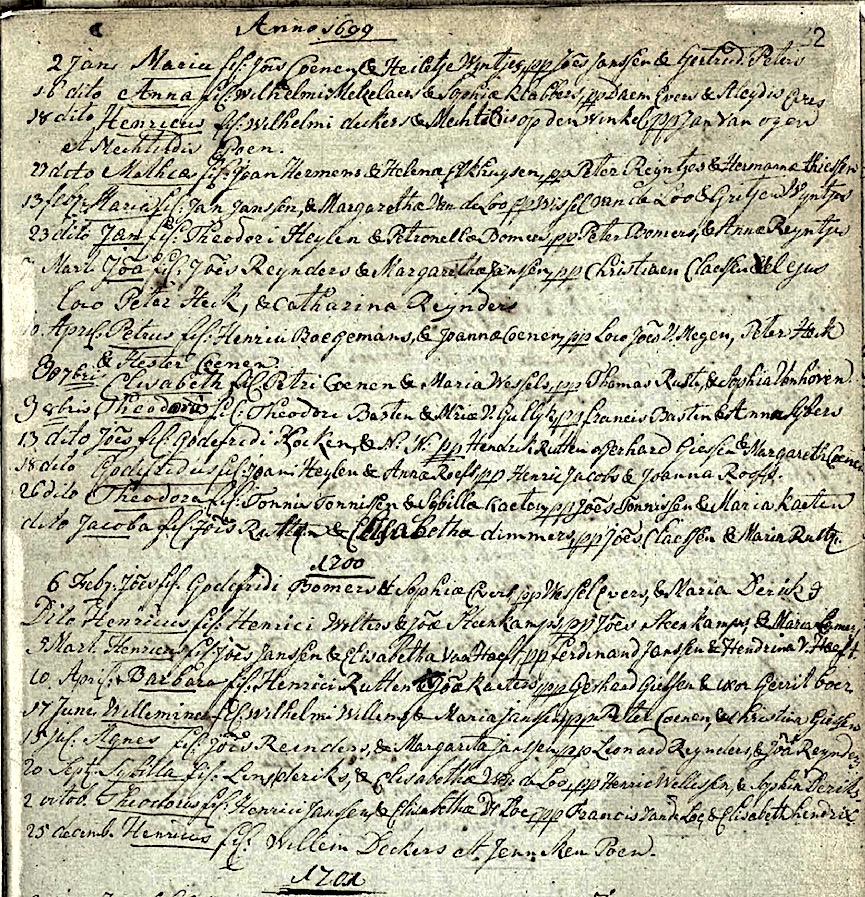 Anno 1699
2
2 Jan: Maria fil: Joïs Coenen & Heiltje Wyntjes, pp Joës Janssen & Gertrud. Peters
16 dito Anna fil: Wilhelmi Mekelaers & Sophiæ Klabbers, pp Daem Evers & Aleydis Evers
18 dito Henricus fil: Wilhelmi deckers & Mechteldis op den winkel pp Jan Van ogen
et Mechtildis Poen.
27 dito Mathias fil: Joan Hermens & Helenæ Elkhuysen, pp Peter Reyntjes & Hermannæ thiessen
13 feb: Maria fil: Jan Janssen, & Margarethæ Van de Loo pp Wissel van de Loo & Gritjen Wyntjes
23 dito Jan fil: Theodori Heylen & Petronellæ Bomers, pp Peter Bomers, & Anna Reyntjes
Mart: Joa fil: Joës Reynders & Margarethæ Janssen, pp Christiaen Claessen & ejus
loco Peter Heck, & Catharina Reynders
10. April: Petrus fil: Henrici Boegemans, & Joannæ Coenen, pp Loco Joës V. Megen, Peter Heck
& Hester Coenen
7bris Elisabeth fil: Petri Coenen & Maria Wessels, pp Thomas Rutte, & Sophia Vonhoven.
9 8bris Theodorus fil: Theodori Basten & Mriæ V. Gullyk, pp Francis Bastin & Anna Gybers
13 dito Joës fil: Godefridi Kocken, & N. N. pp Hendrik Rutten Gerhard Giesen & Margareth Coenen
18 dito Godefridus fil: Joani Heylen & Annæ Roefs, pp Henric Jacobs & Joanna Rooffs.
26 dito Theodora fil: Tonnis Tonnissen & Sybillæ Kaeten, pp Joës Tonnissen & Maria Kaeten
dito Jacoba fil: Joës Rutten & Elisabethæ dimmers, pp Joës Claessen & Maria Rutte.
1700
6 Feby. Joës fil: Godefridi Bomers & Sophiæ Evers pp Wessel Evers, & Maria Deriks
Dito Henricus fil: Henrici Wolters & Joæ Steenkamps, pp Joës Steenkamps & Maria
5 Mart: Henricus fil: Joës Janssen & Elisabetha van Haeft pp Ferdinand Janssen & Hendrina V. Haeft
10. April: Barbara fil: Henrici Rutten & Joæ Kaeten, pp Gerhard Giessen & uxor Gerrit boer
17 Juny Willemina fil: Wilhelmi Willems & Maria Janssen, pp Peter Coenen, & Christina Giesen
15 Jul: Agnes fil: Joës Reinders, & Margarita Janssen, pp Leonard Reynders, & Joa Reynders
20 Sept: Sybilla fil: Lens deriks, & Elisabethæ Van de Loo, pp Henric Willessen, & Sophia Deriks
2 octob. Theodorus fil: Henrici Janssen, & Elisabethæ V. Loe, pp Francis Van de Loe, & Elisabeth hendrix
25 decemb: Henricus fil: Willem Deckers et Jenneken Poen.
1701